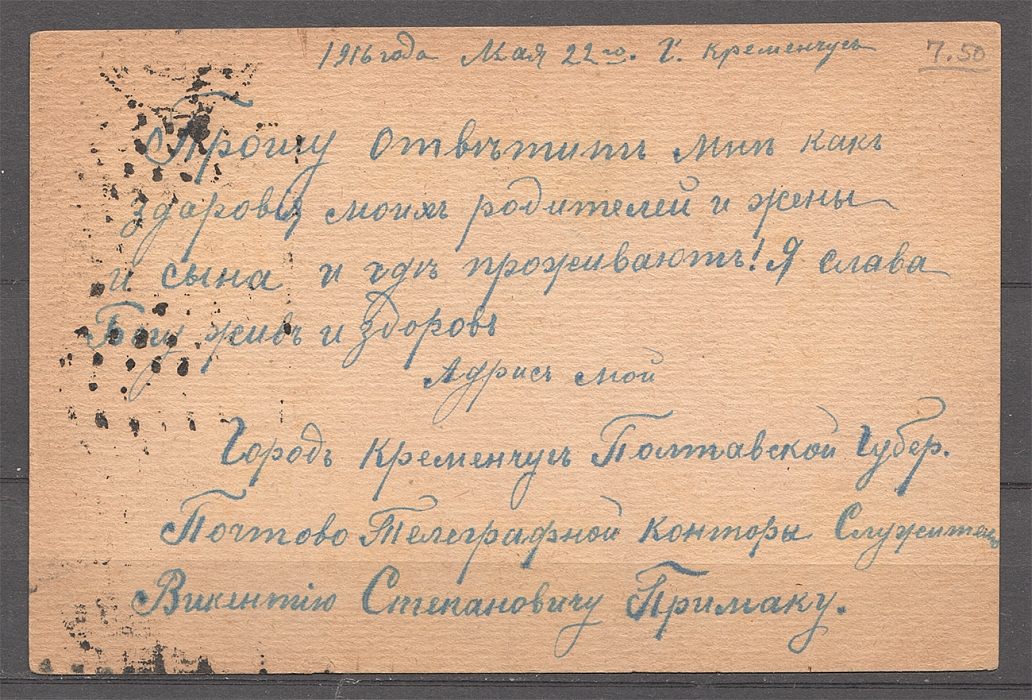 1916 года Мая 22го. Г. Кременчугъ
7.50
Прошу отвѣтить мнѣ какъ
здоровья моихъ родителей и жены
и сына и гдѣ проживаютъ! Я слава
Богу живъ и здоровъ
Адрисъ мой
Городъ Кременчугъ Полтавской Губер.
Почтово Телеграфной Конторы Служителю
Викентію Степановичу Примаку.